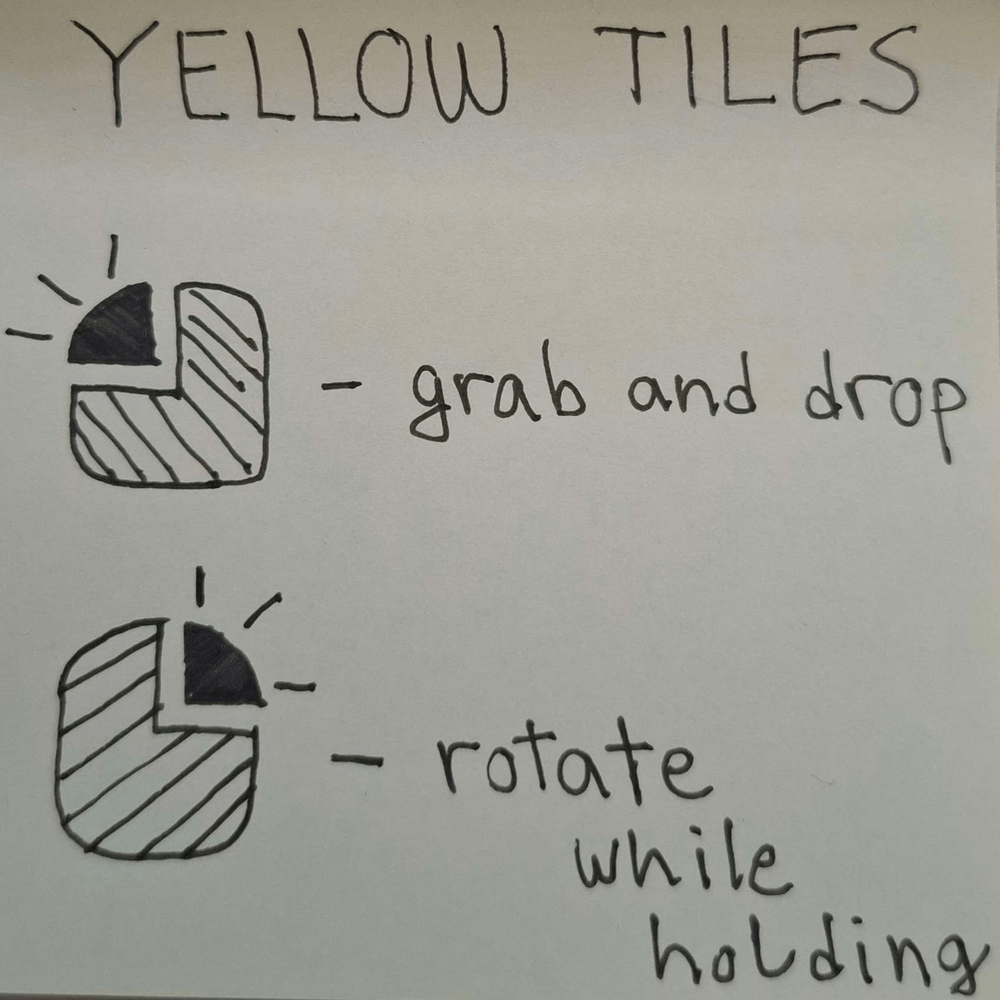 YELLOW TILES
- grab and drop
- rotate
while
holding